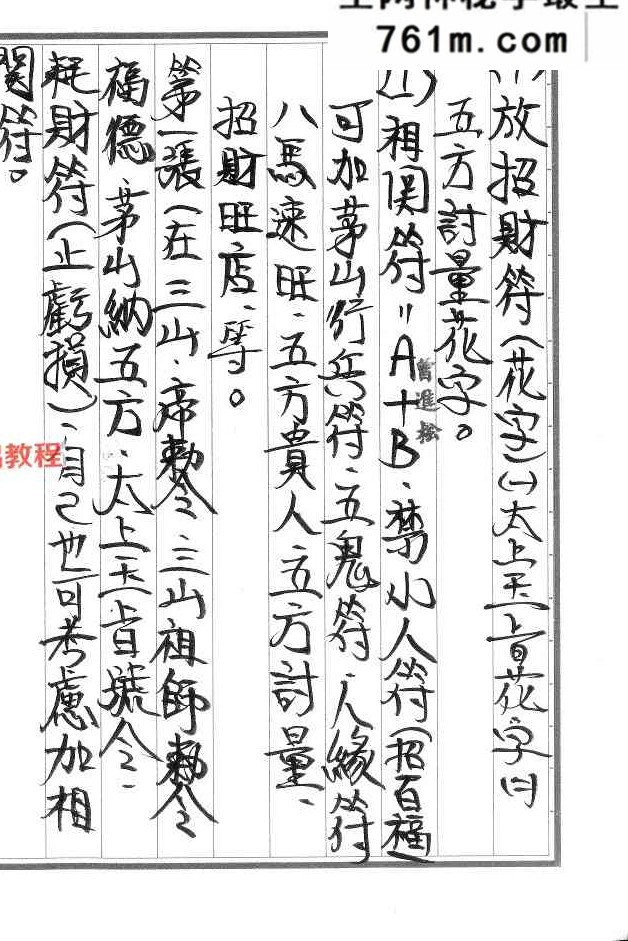 761m.com
放招財符(花字)(一)太上玉旨花字(二)
五方討量花字。
(1)祖関符=A+B、禁小人符(招百福
可加茅山行兵符、五鬼符、人緣符
八馬速旺、五方貴人、五方討量、
招財旺店、等。
第一張(在三山、帝勅令、三山祖師勅令
福德、茅山納五方、太上玉旨號令、
耗財符(止虧損)、自己也可考慮加相
関符。
舊進松
教程